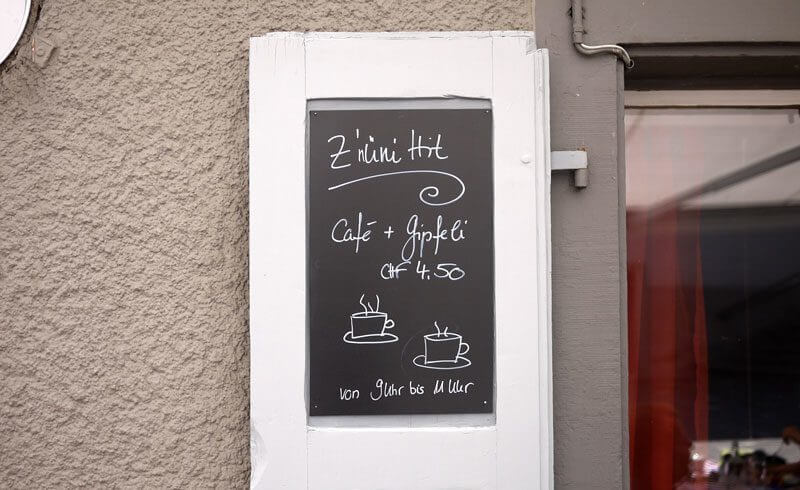 Z'nüni Hit
Café + Gipfeli
CHF 4.50
von 9 Uhr bis 11 Uhr